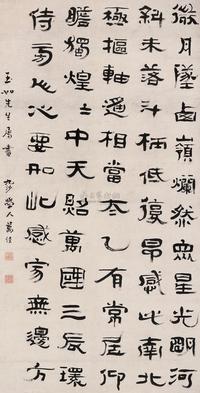 微月墜西嶺爛然眾星光明河
斜未落斗柄低復昂感此南北
極樞軸遙相當太乙有常居仰
瞻獨煌々中天照萬國三辰環
侍旁人心要如此感寂無邊方
先生屬書 九沙學人萬經